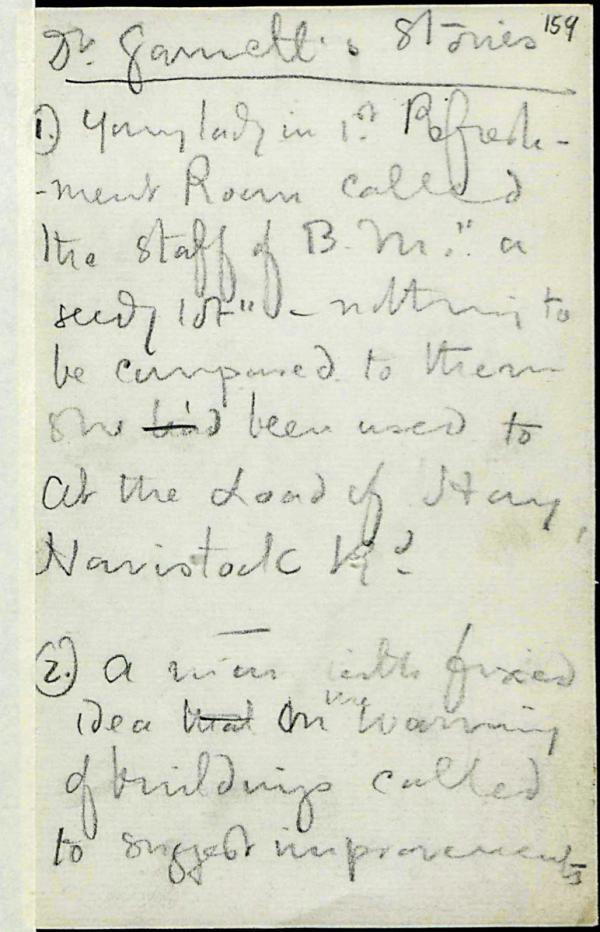 159
Dr. Garnett's Stories
1.) Young lady in 1st Refresh-
-ment Room called
the staff of B. M. "a
seedy lot" - nothing to
be compared to them
she had been used to
at the Load of Hay,
Haverstock
2.) A man with fixed
idea that on the warming
of buildings called
to suggest improvements